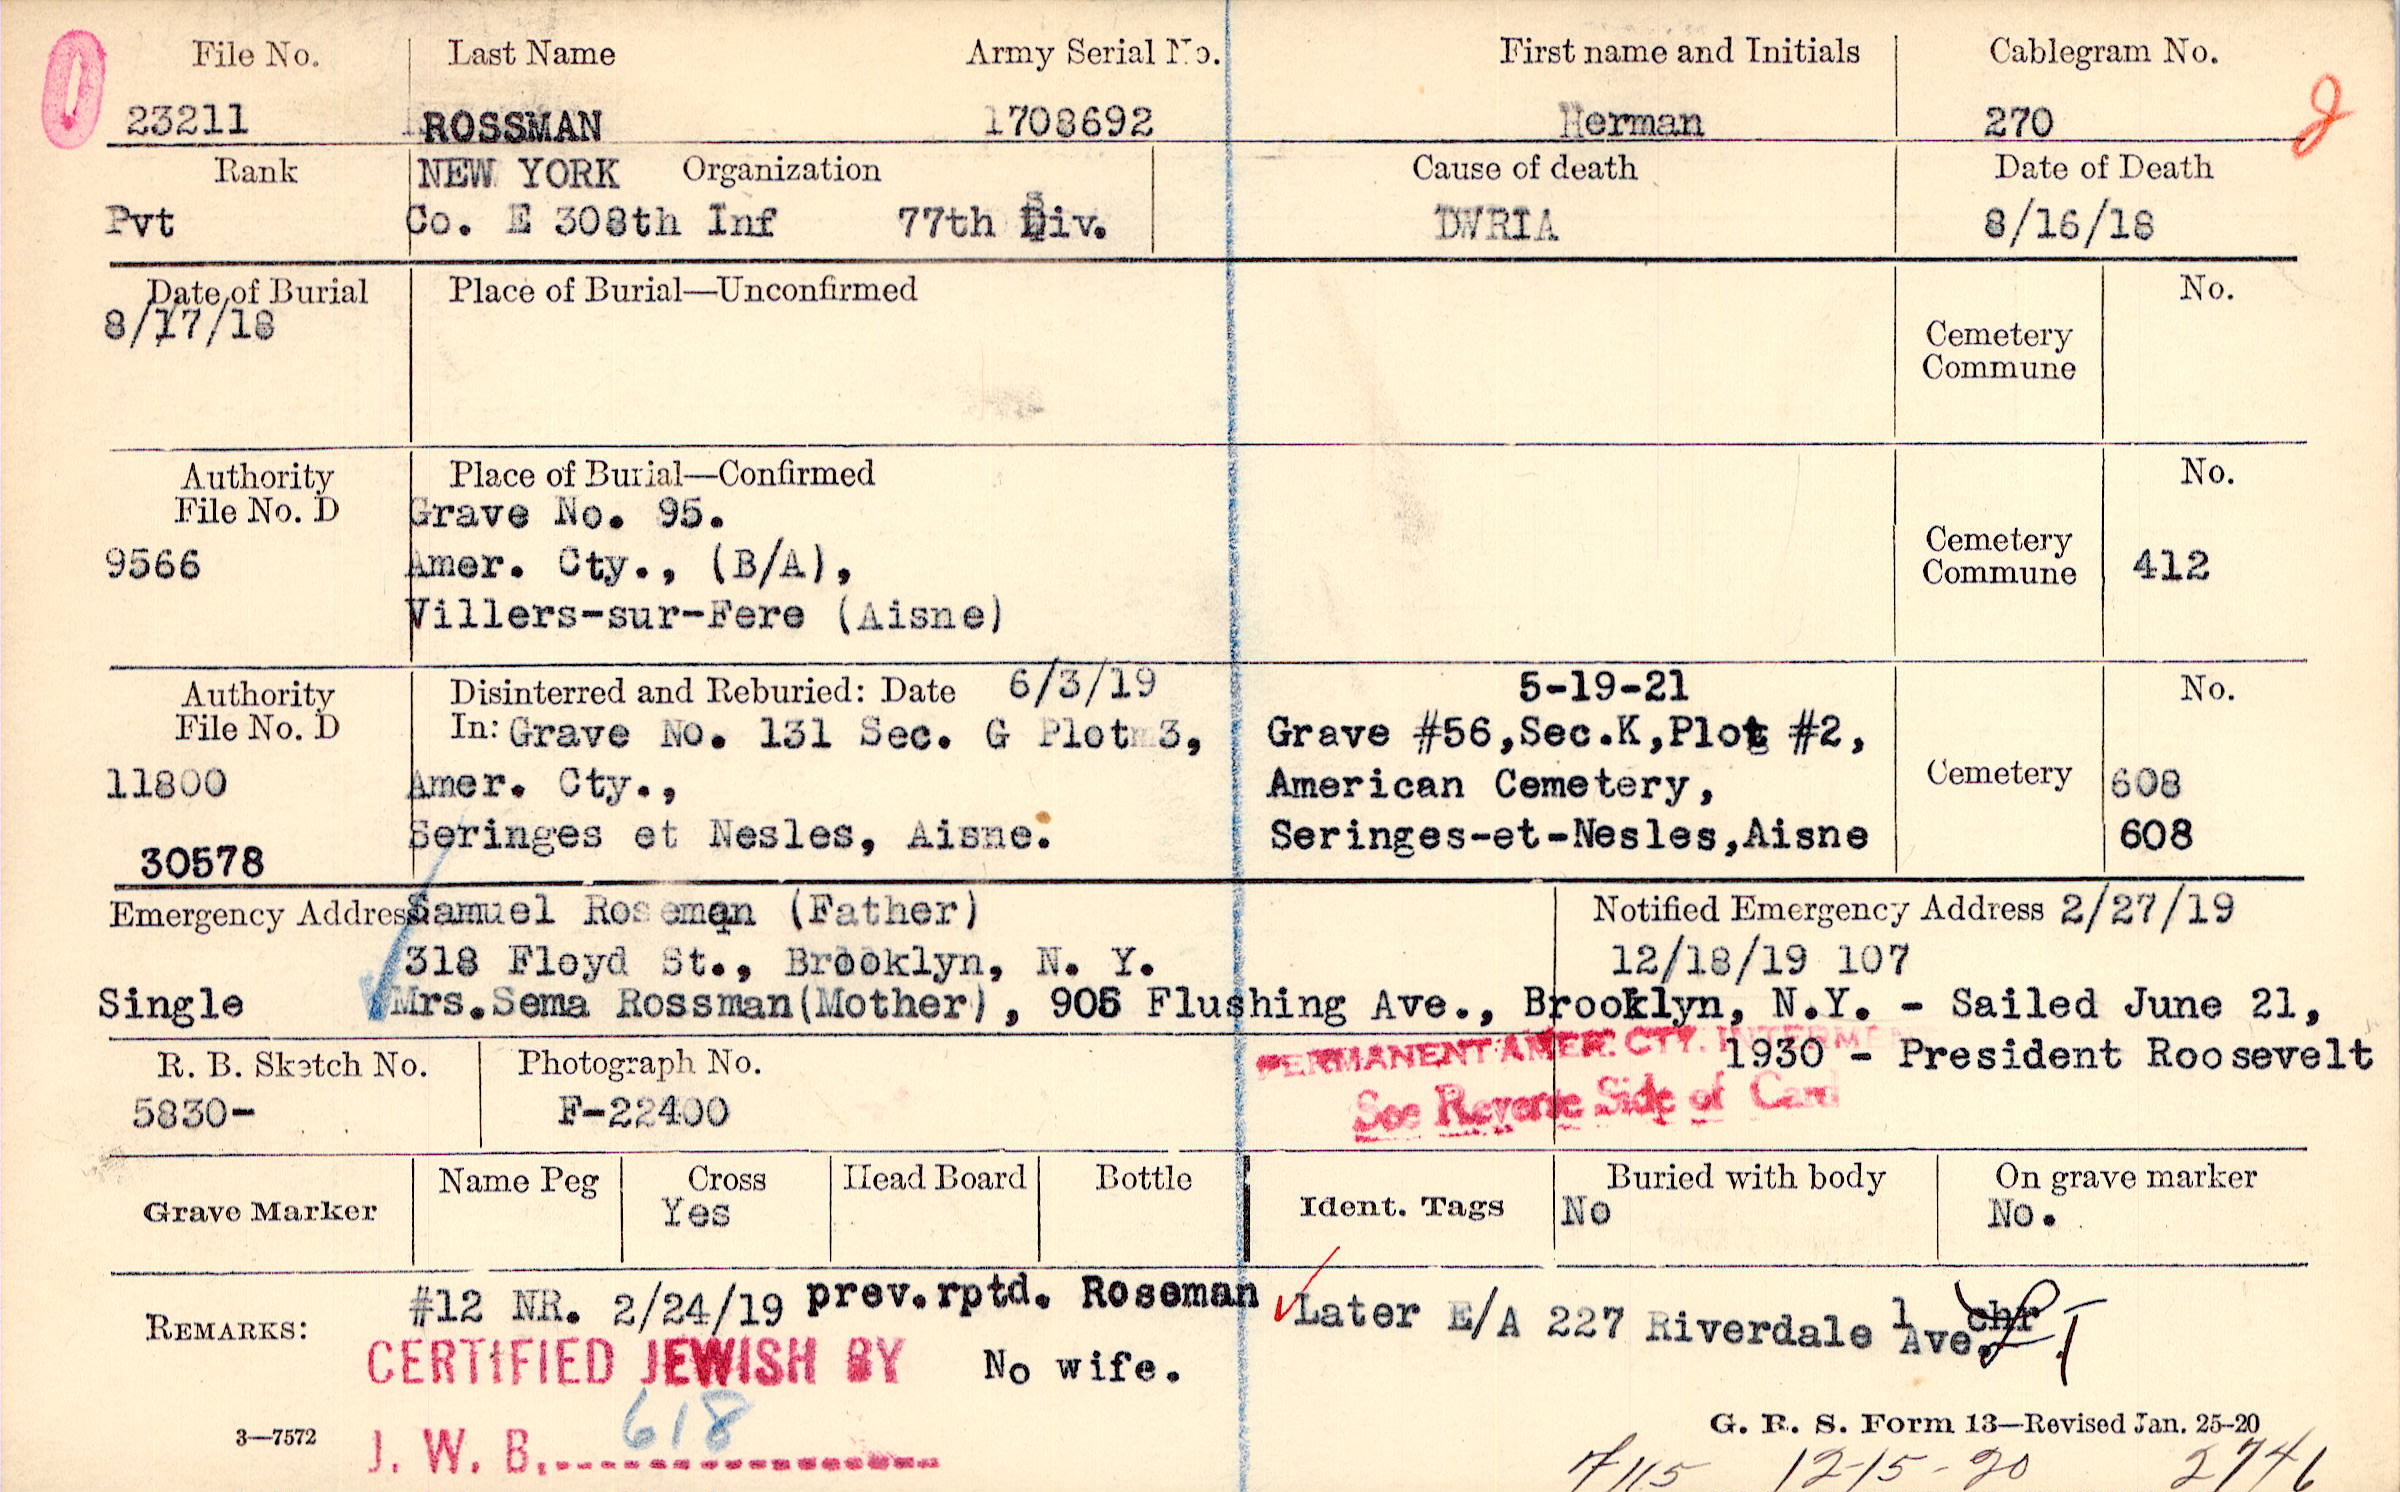 File No. Last Name Army Serial No. First name and Initials Cablegram No.
23211 ROSSMAN 1708692 Herman 270
Rank NEW YORK Organization Cause of death Date of Death
Pvt Co. E 308th Inf 77th Div. DWRIA 8/16/18
Date of Burial Place of Burial—Unconfirmed No.
8/17/18
Cemetery
Commune
Authority Place of Burial—Confirmed No.
File No. D Grave No. 95.
9566 Amer. Cty., (B/A), Cemetery
Commune 412
Villers-sur-Fere (Aisne)
Authority Disinterred and Reburied: Date 6/3/19 5-19-21 No.
File No. D In: Grave No. 131 Sec. G Plot 3, Grave #56,Sec.K,Plot #2,
11800 Amer. Cty., American Cemetery, Cemetery 608
30578 Seringes et Nesles, Aisne. Seringes-et-Nesles,Aisne 608
Emergency Address Samuel Roseman (Father) Notified Emergency Address 2/27/19
318 Floyd St., Brooklyn, N. Y. 12/18/19 107
Single Mrs.Sema Rossman(Mother), 905 Flushing Ave., Brooklyn, N.Y. - Sailed June 21,
1930 - President Roosevelt
PERMANENT AMER. CTY. INTERMEN
See Reverse Side of Card
R. B. Sketch No. Photograph No.
5830- F-22400
Grave Marker Name Peg Cross Head Board Bottle Ident. Tags Buried with body On grave marker
Yes No No.
REMARKS: #12 NR. 2/24/19 prev.rptd. Roseman Later E/A 227 Riverdale Ave. 1 chr
CERTIFIED JEWISH BY No wife.
618
J. W. B.
3—7572 G. R. S. Form 13—Revised Jan. 25-20
7115 12-15-20 2746